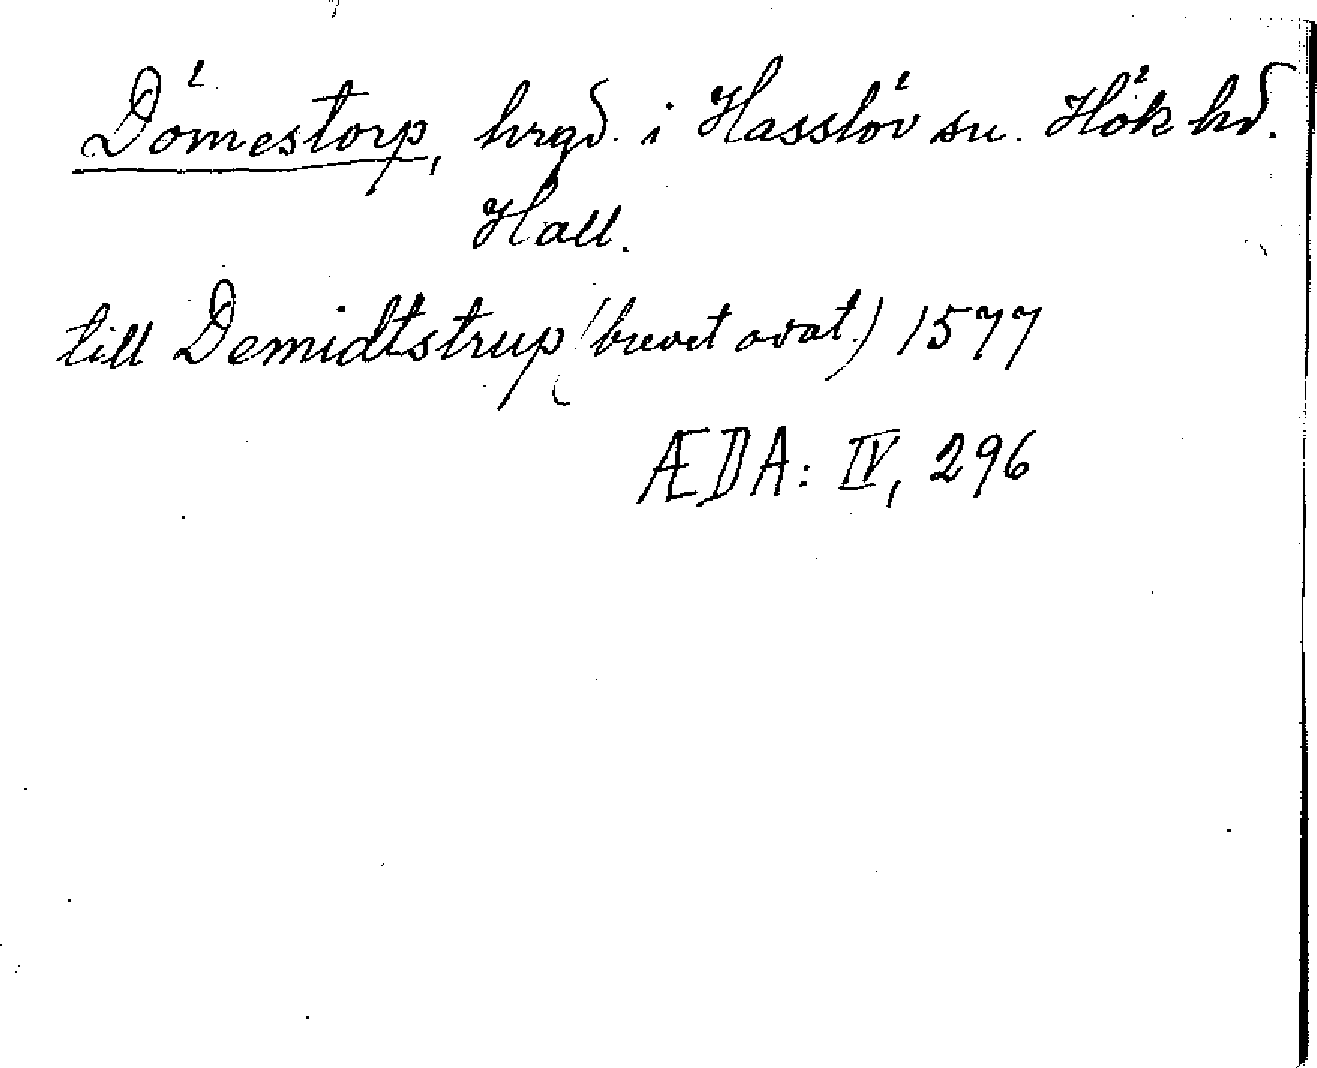 Dömestorp, hrgd. i Hasslöv sn. Hök hd.
Hall.
till Demidtstrup (brevet odat.) 1577
ÆDA: IV, 296